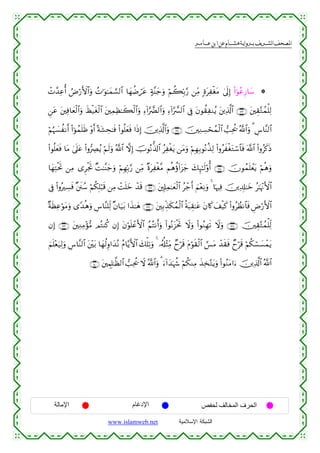 المصحف الشريف برواية هشام عن ابن عامر
* سَارِعُوٓا۟ إِلَىٰ مَغْفِرَةٍ مِّن رَّبِّكُمْ وَجَنَّةٍ عَرْضُهَا ٱلسَّمَـٰوَٰتُ وَٱلْأَرْضُ أُعِدَّتْ
لِلْمُتَّقِينَ ۝ ٱلَّذِينَ يُنفِقُونَ فِى ٱلسَّرَّآءِ وَٱلضَّرَّآءِ وَٱلْكَـٰظِمِينَ ٱلْغَيْظَ وَٱلْعَافِينَ عَنِ
ٱلنَّاسِ ۗ وَٱللَّهُ يُحِبُّ ٱلْمُحْسِنِينَ ۝ وَٱلَّذِينَ إِذَا فَعَلُوا۟ فَـٰحِشَةً أَوْ ظَلَمُوٓا۟ أَنفُسَهُمْ
ذَكَرُوا۟ ٱللَّهَ فَٱسْتَغْفَرُوا۟ لِذُنُوبِهِمْ وَمَن يَغْفِرُ ٱلذُّنُوبَ إِلَّا ٱللَّهُ وَلَمْ يُصِرُّوا۟ عَلَىٰ مَا فَعَلُوا۟
وَهُمْ يَعْلَمُونَ ۝ أُو۟لَـٰٓئِكَ جَزَآؤُهُم مَّغْفِرَةٌ مِّن رَّبِّهِمْ وَجَنَّـٰتٌ تَجْرِى مِن تَحْتِهَا
ٱلْأَنْهَـٰرُ خَـٰلِدِينَ فِيهَا ۚ وَنِعْمَ أَجْرُ ٱلْعَـٰمِلِينَ ۝ قَدْ خَلَتْ مِن قَبْلِكُمْ سُنَنٌ فَسِيرُوا۟ فِى
ٱلْأَرْضِ فَٱنظُرُوا۟ كَيْفَ كَانَ عَـٰقِبَةُ ٱلْمُكَذِّبِينَ ۝ هَـٰذَا بَيَانٌ لِّلنَّاسِ وَهُدًى وَمَوْعِظَةٌ
لِّلْمُتَّقِينَ ۝ وَلَا تَهِنُوا۟ وَلَا تَحْزَنُوا۟ وَأَنتُمُ ٱلْأَعْلَوْنَ إِن كُنتُم مُّؤْمِنِينَ ۝ إِن
يَمْسَسْكُمْ قَرْحٌ فَقَدْ مَسَّ ٱلْقَوْمَ قَرْحٌ مِّثْلُهُۥ ۚ وَتِلْكَ ٱلْأَيَّامُ نُدَاوِلُهَا بَيْنَ ٱلنَّاسِ وَلِيَعْلَمَ
ٱللَّهُ ٱلَّذِينَ ءَامَنُوا۟ وَيَتَّخِذَ مِنكُمْ شُهَدَآءَ ۗ وَٱللَّهُ لَا يُحِبُّ ٱلظَّـٰلِمِينَ ۝
الحرف المخالف لحفص الإدغام الإمالة
الشبكة الإسلامية www.islamweb.net